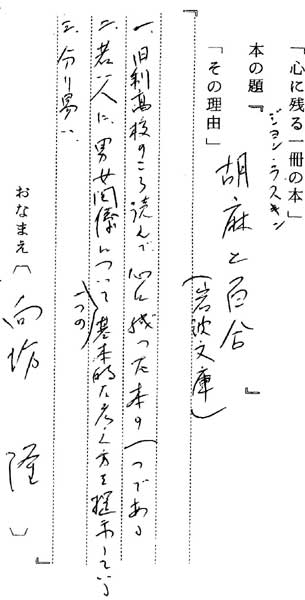 「心に残る一冊の本」
ジョン・ラスキン
本の題『胡麻と百合(岩波文庫)』
「その理由」
『
一、旧制高校のころ読んで心に残った本の一つである
二、若い人に、男女関係について基本的な考え方を提示している
一つの
三、分り易い、
おなまえ〔向坊 隆〕
』